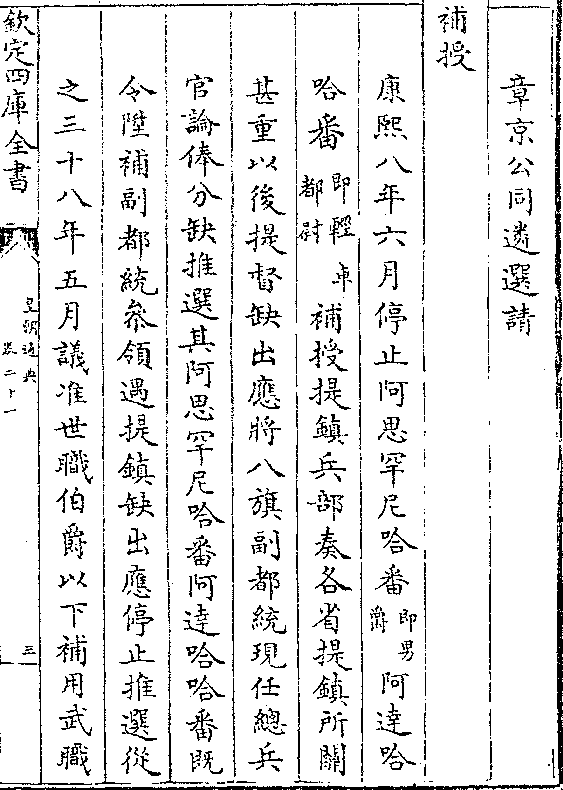 章京公同遴選請
補授
康熙八年六月停止阿思罕尼哈番即男爵阿達哈
哈番即輕車都尉補授提鎮兵部奏各省提鎮所關
甚重以後提督缺出應將八旗副都統現任總兵
官論俸分缺推選其阿思罕尼哈番阿達哈哈番既
令陞補副都統參領遇提鎮缺出應停止推選從
之三十八年五月議准世職伯爵以下補用武職
欽定四庫全書
皇朝通典
卷二十一
三